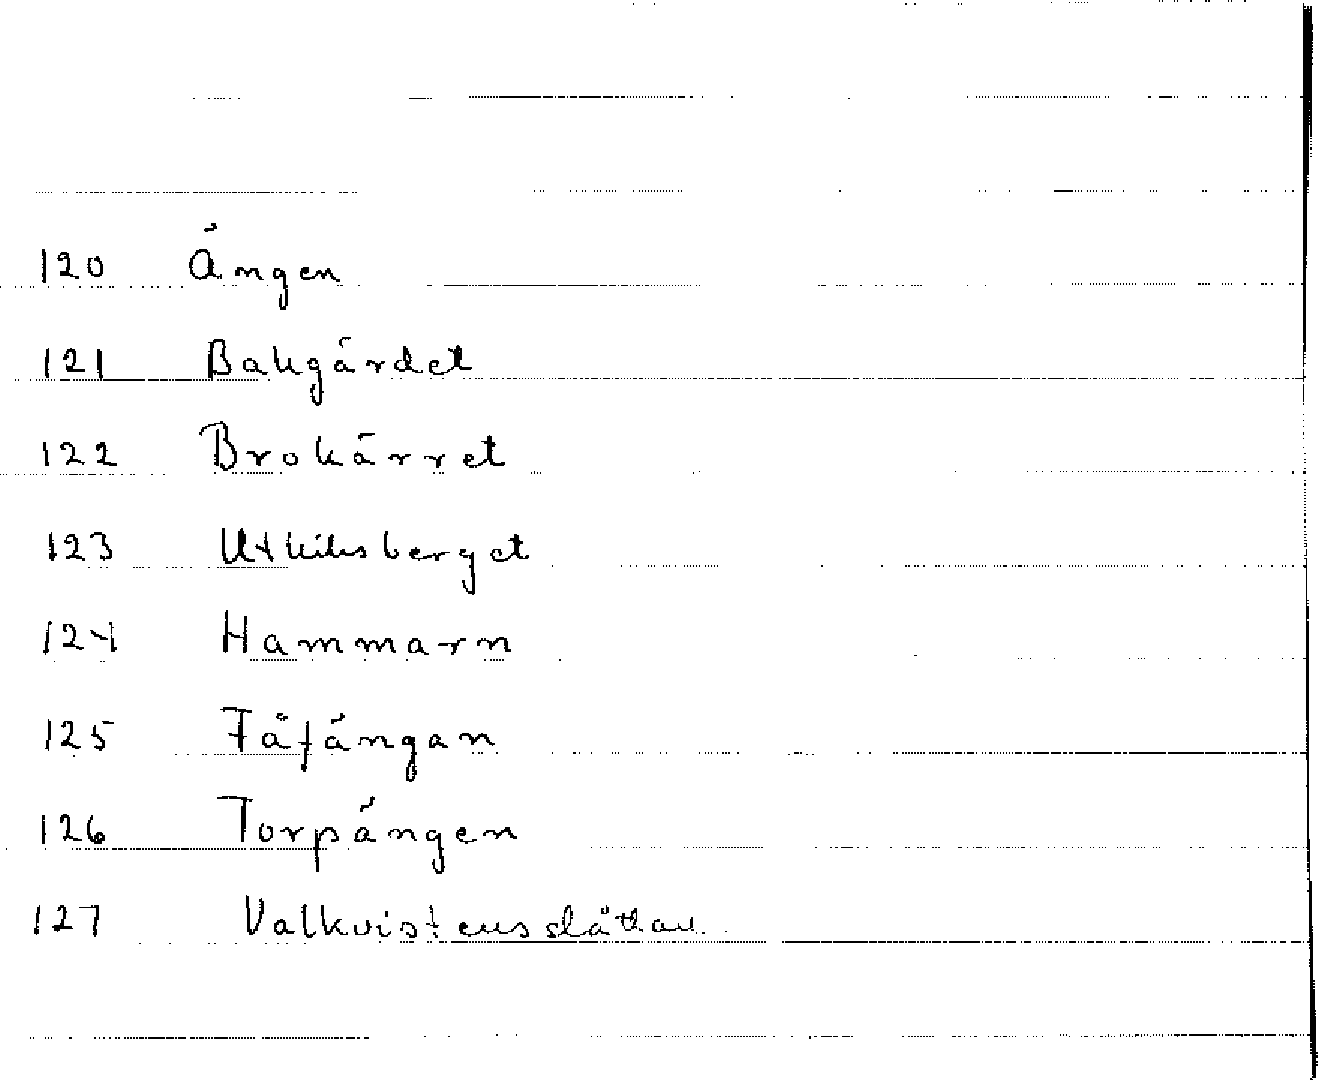 120 Ängen
121 Bakgärdet
122 Brokärret
123 Utkiksberget
124 Hammarn
125 Fäfängan
126 Torpängen
127 Valkvistensslåttan.